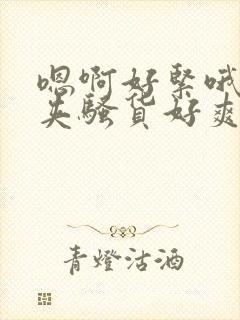 嗯啊好紧哦
夹骚货好爽
青燈沽酒